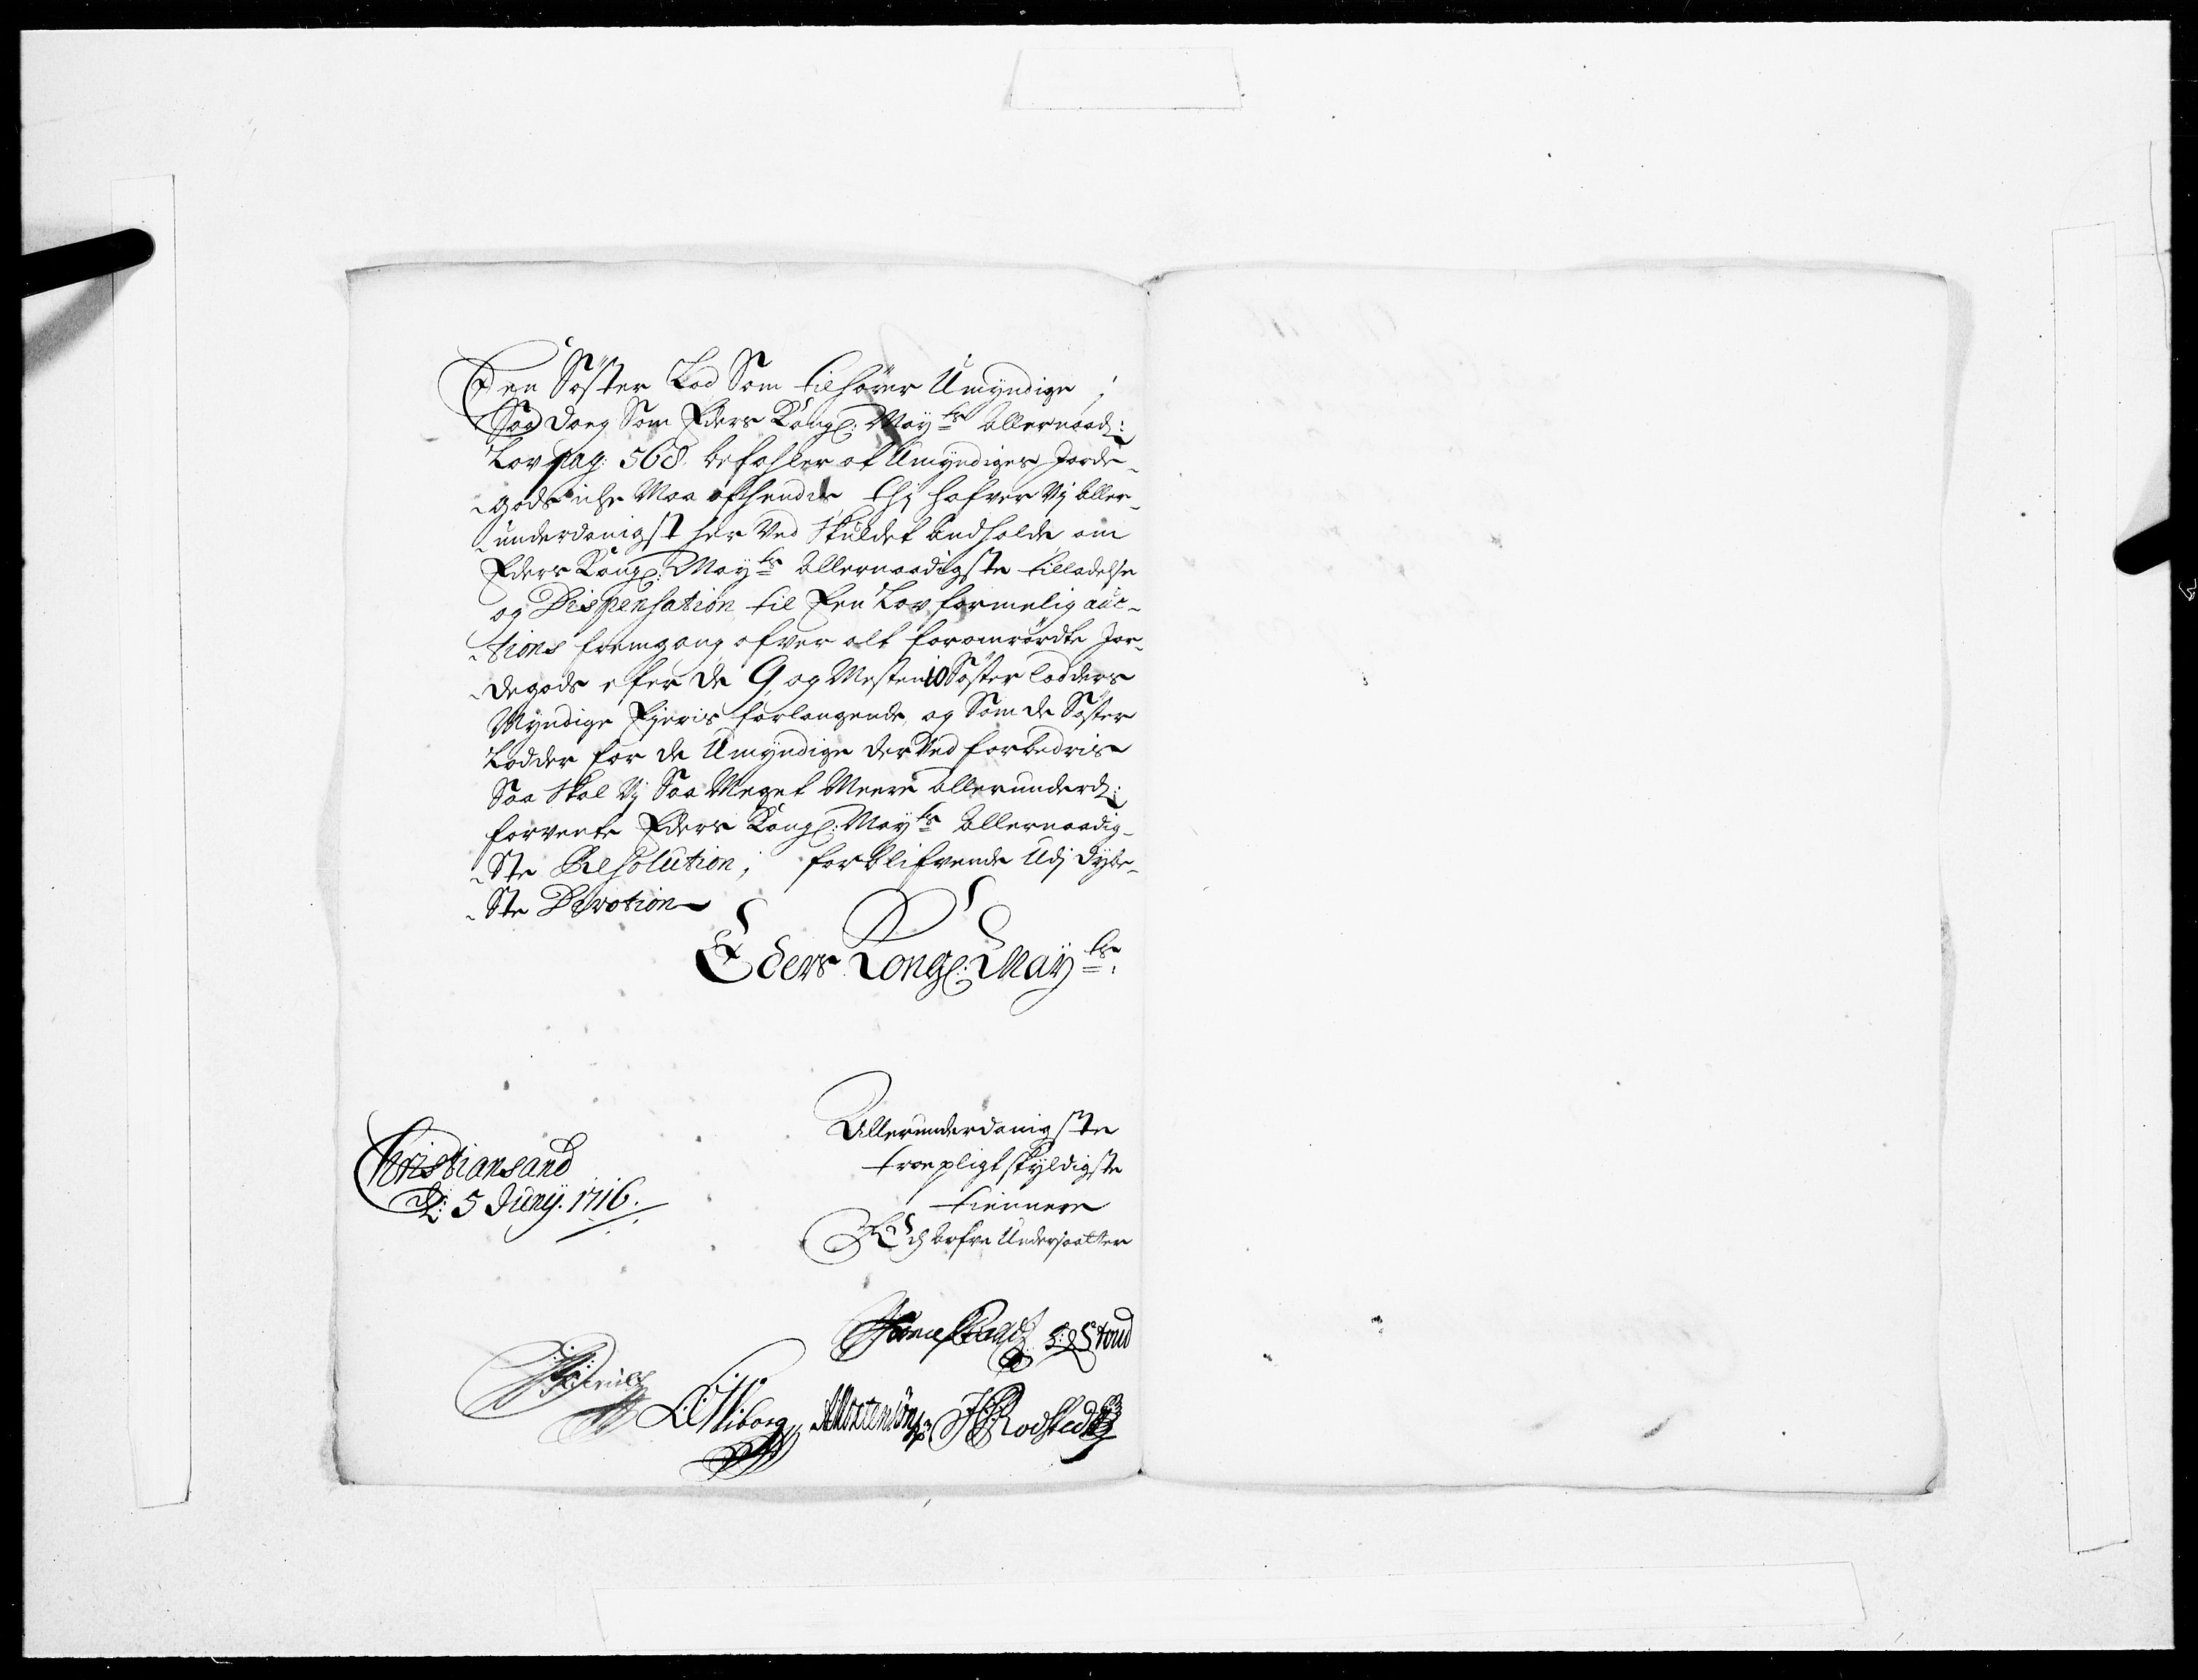 Een Söster Lod Som tilhörer Umyndige;
Saa dog Som Eders Kongl: May:ts allernaad:
Lov pag: 568. befahler at Umyndiges Jorde-
gods iche Maa afhendis, thj hafver Vj aller-
underdanigst her Ved Skuldet andholde om
Eders Kongl: May:ts allernaadigste tilladelse
og Dispensation til Een Lov formelig auc-
tions fremgang ofver alt foromrördte Jor-
degods efter de 9, og Mesten 10 Söster lodders
Myndige Ejeris forlangende, og Som de Söster
Lodder for de Umyndige derved forbedris
Saa Skal Vj Saa Meget Meere allerunderd:
forvente Eders Kongl: May:ts allernaadig-
Ste Resolution, forblifvende Udj dybe-
Ste Devotion
Eders Kongl: May:ts:
Allerunderdanigste
troepligtskyldigste
tiennere
Och arfve Undersaatter
Christiansand
d: 5 Junij. 1716.
Stoud
Wiborg Mortensön Rodsted